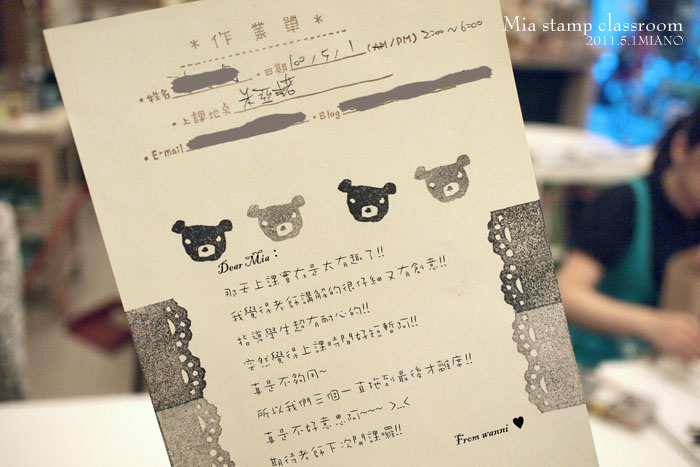 Mia stamp classroom
2011.5.1MIANO
* 作業單 *
•姓名 •日期 100/5/1 (AM/PM) 2:00~6:00
•上課地点
•E-mail •Blog
Dear Mia:
那天上課實在是太有趣了!!
我覺得老師講解的很仔細又有創意!!
指導學生超有耐心的!!
突然覺得上課時間好短暫阿!!
真是不夠用~
所以我們三個一直拖到最後才離席!!
真是不好意思阿~~~ >...<
期待老師下次開課囉!!
From wanni ♥